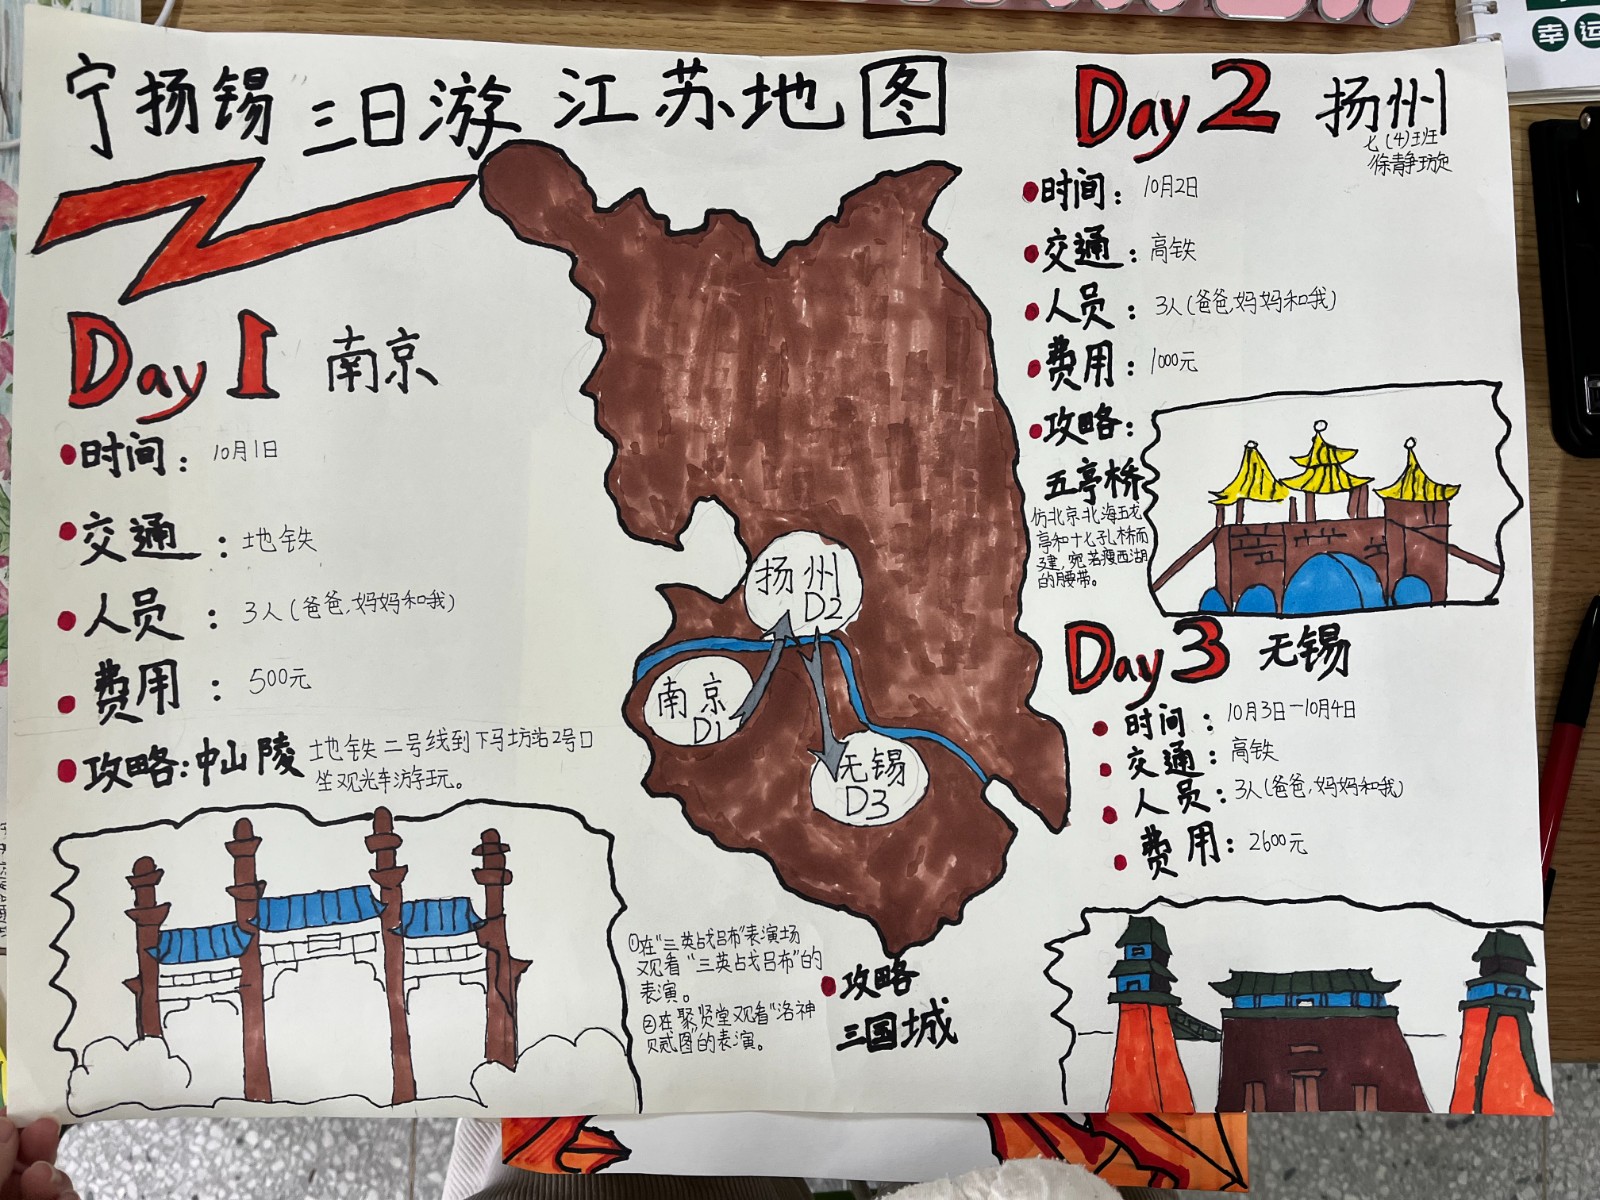 宁扬锡三日游 江苏地图
Day 1 南京
时间：10月1日
交通：地铁
人员：3人(爸爸,妈妈和我)
费用：500元
攻略:中山陵 地铁二号线到下马坊站2号口
坐观光车游玩。
扬州
D2
南京
D1
无锡
D3
Day 2 扬州
七(4)班
徐静玙旋
时间：10月2日
交通：高铁
人员：3人(爸爸,妈妈和我)
费用：1000元
攻略：
五亭桥
仿北京北海五龙
亭和十七孔桥而
建，宛若瘦西湖
的腰带。
Day 3 无锡
时间：10月3日—10月4日
交通：高铁
人员：3人(爸爸,妈妈和我)
费用：2600元
攻略
三国城
①在"三英战吕布"表演场
观看"三英战吕布"的
表演。
②在聚贤堂观看"洛神
贰图"的表演。
幸运